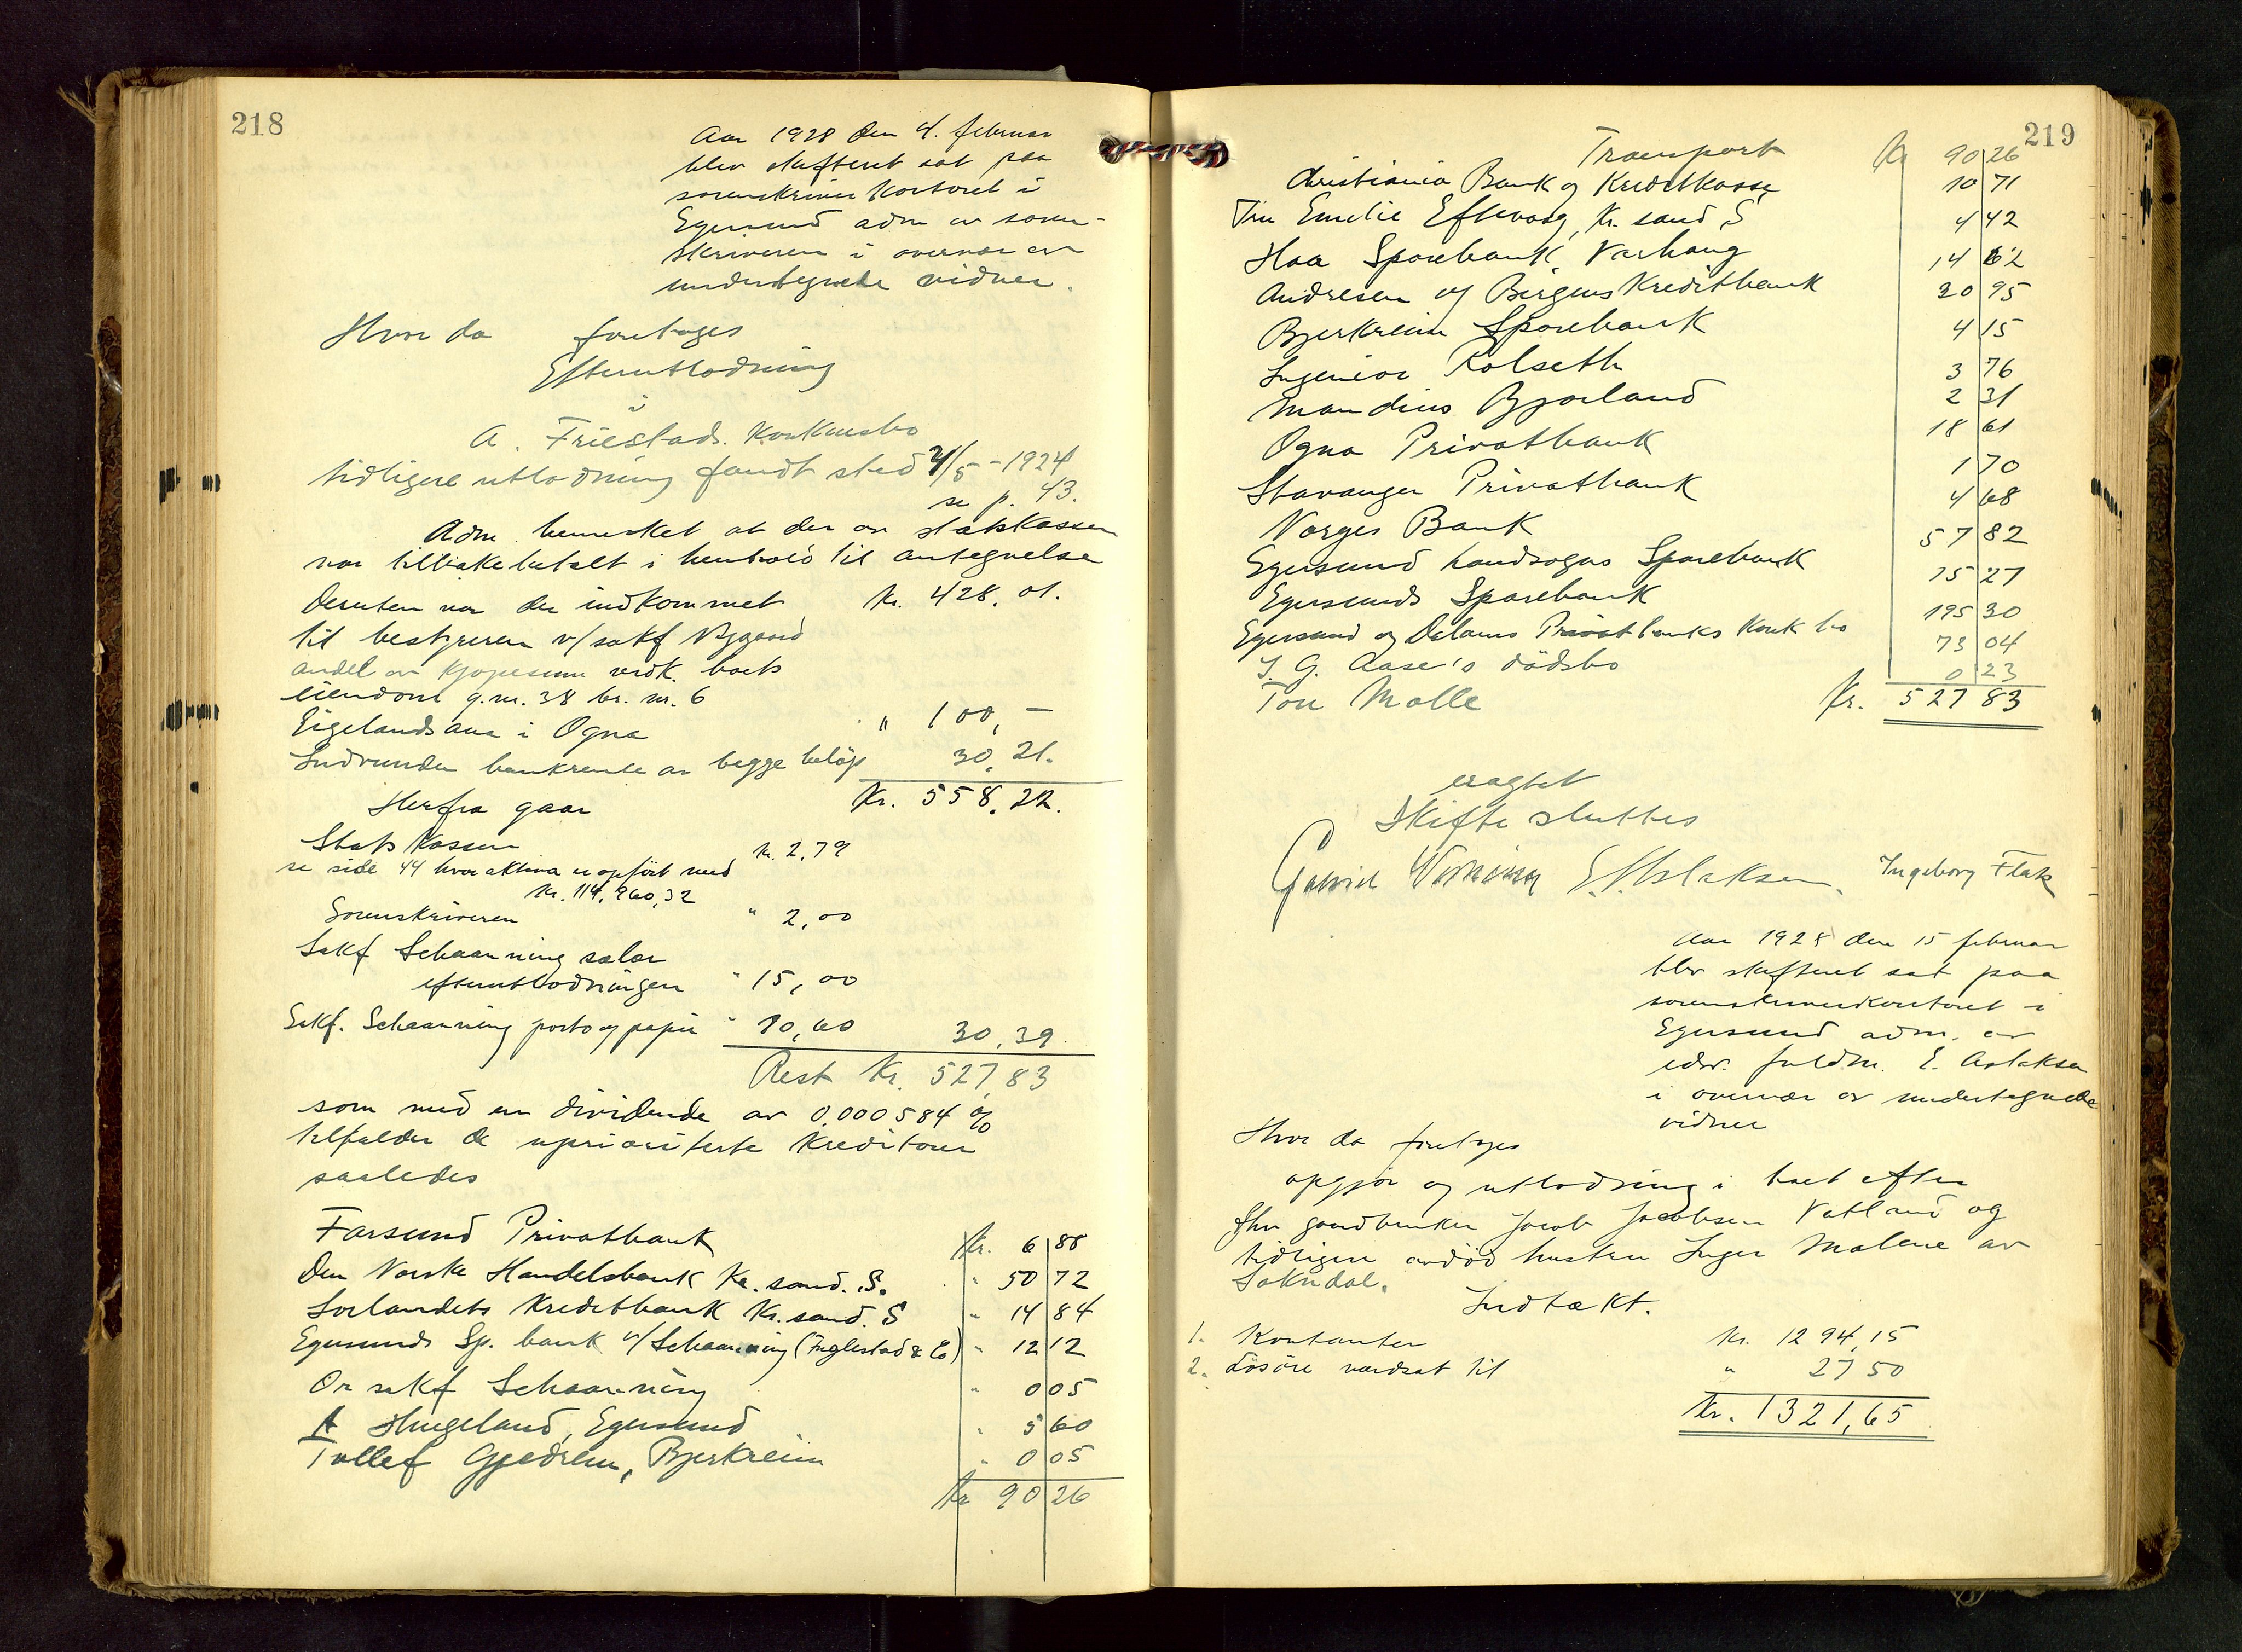 218
Aar 1928 den 4. februar
blev skifteret sat paa
sorenskriverkontoret i
Egersund adm av soren-
skriveren i overvær av
undertegnede vidner.
Hvor da foretoges
Efterutlodning
i
A. Friestads. Konkursbo
tidligere utlodning fandt sted 2/5 - 1924
se p. 43.
Adm. bemerket at der av statskassen
var tilbakebetalt i henhold til antegnelse
Kr. 428.01.
Desuten var der indkommet
til bestyreren v/sakf Nygaard
andel av kjøpesum vedk. boets
eiendom g.nr. 38 br. nr. 6
Eigelandsaa i Ogna " 100,-
Indvunden bankrente av begge beløp 30,21.
Kr. 558,22.
Herfra gaar
Statskassen Kr. 2,79
se side 44 hvor aktiva er opført med
Kr. 114,960,32
Sorenskriveren " 2,00
Sakf Schaanning salær
efterutlodningen " 15,00
Sakf. Schaanning porto og papir " 10,60 30,39.
Rest Kr. 527,83
som med en dividende av 0,000584 %
tilfalder de uprioriterte kreditorer
saaledes
Farsund Privatbank Kr. 6 88
Den Norske Handelsbank Kr.sand. S. " 50 72
Sørlandets Kreditbank Kr.sand. S " 14 84
Egersunds Sp. bank v/Schaanning (Fuglestad & Co) " 12 12
Or sakf Schaanning " 0 05
A Hugeland, Egersund " 5 60
Tollef Gjedrem, Bjerkreim " 0 05
Kr 90 26
219
Transport Kr 90 26
Christiania Bank og Kreditkasse 10 71
Fru Emelie Eftevaag, Kr.sand S 4 42
Haa Sparebank, Varhaug 14 62
Andresen og Bergens Kreditbank 20 95
Bjerkreim Sparebank 4 15
Ingeniør Rolseth 3 76
Mandius Bjorland 2 31
Ogna Privatbank 18 61
Stavanger Privatbank 1 70
Norges Bank 4 68
Egersund Landsogns Sparebank 57 82
Egersunds Sparebank 15 27
Egersund og Dalarnes Privatbanks Konk bo 195 30
J. G. Aase's dødsbo 73 04
Ton Molle 0 23
Kr. 527 83
eragtet
Skifte sluttes
E. Aslaksen. Ingeborg Flak
Aar 1928 den 15 februar
blev skifteret sat paa
sorenskriverkontoret i
Egersund adm. av
edsv. fuldm. E. Aslaksen
i overvær av undertegnede
vidner
Hvor da foretoges
opgjør og utlodning i boet efter
fhv gaardbruker Jacob Jacobsen Vatland og
tidligere avdød hustru Inger Malene av
Sokndal.
Indtækt.
1. Kontanter Kr. 1294,15
2. Løsøre værdsat til " 27 50
Kr. 1321,65